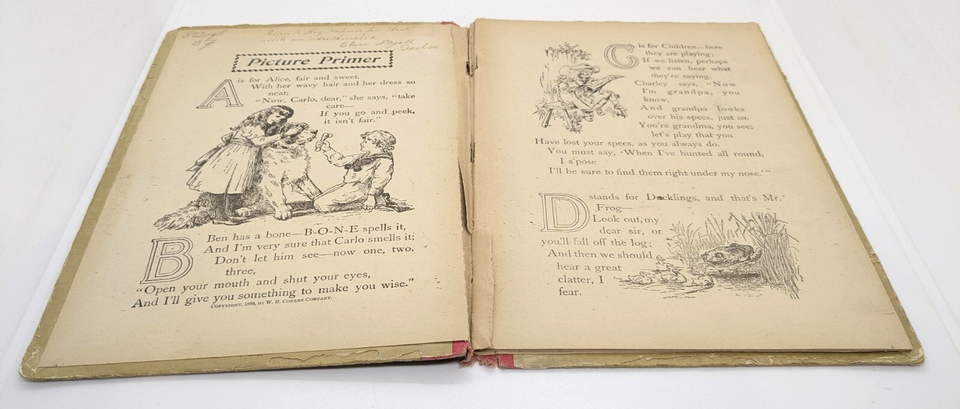 Picture Primer
A is for Alice, fair and sweet,
With her wavy hair and her dress so
neat;
"Now, Carlo, dear," she says, "take
care—
If you go and peek,
it isn't fair."
B Ben has a bone—B-O-N-E spells it,
And I'm very sure that Carlo smells it;
Don't let him see—now one, two,
three,
"Open your mouth and shut your eyes,
And I'll give you something to make you wise."
COPYRIGHT, 1898, BY W. B. CONKEY COMPANY.
C is for Children...here
they are playing;
If we listen, perhaps
we can hear what
they're saying.
Charley says, "Now
I'm grandpa, you
know,
And grandpa looks
over his specs, just so.
You're grandma, you see;
let's play that you
Have lost your specs, as you always do.
You must say, 'When I've hunted all round,
I s'pose
I'll be sure to find them right under my nose.'"
D stands for Ducklings, and that's Mr.
Frog—
Look out, my
dear sir, or
you'll fall off the log;
And then we should
hear a great
clatter, I
fear.